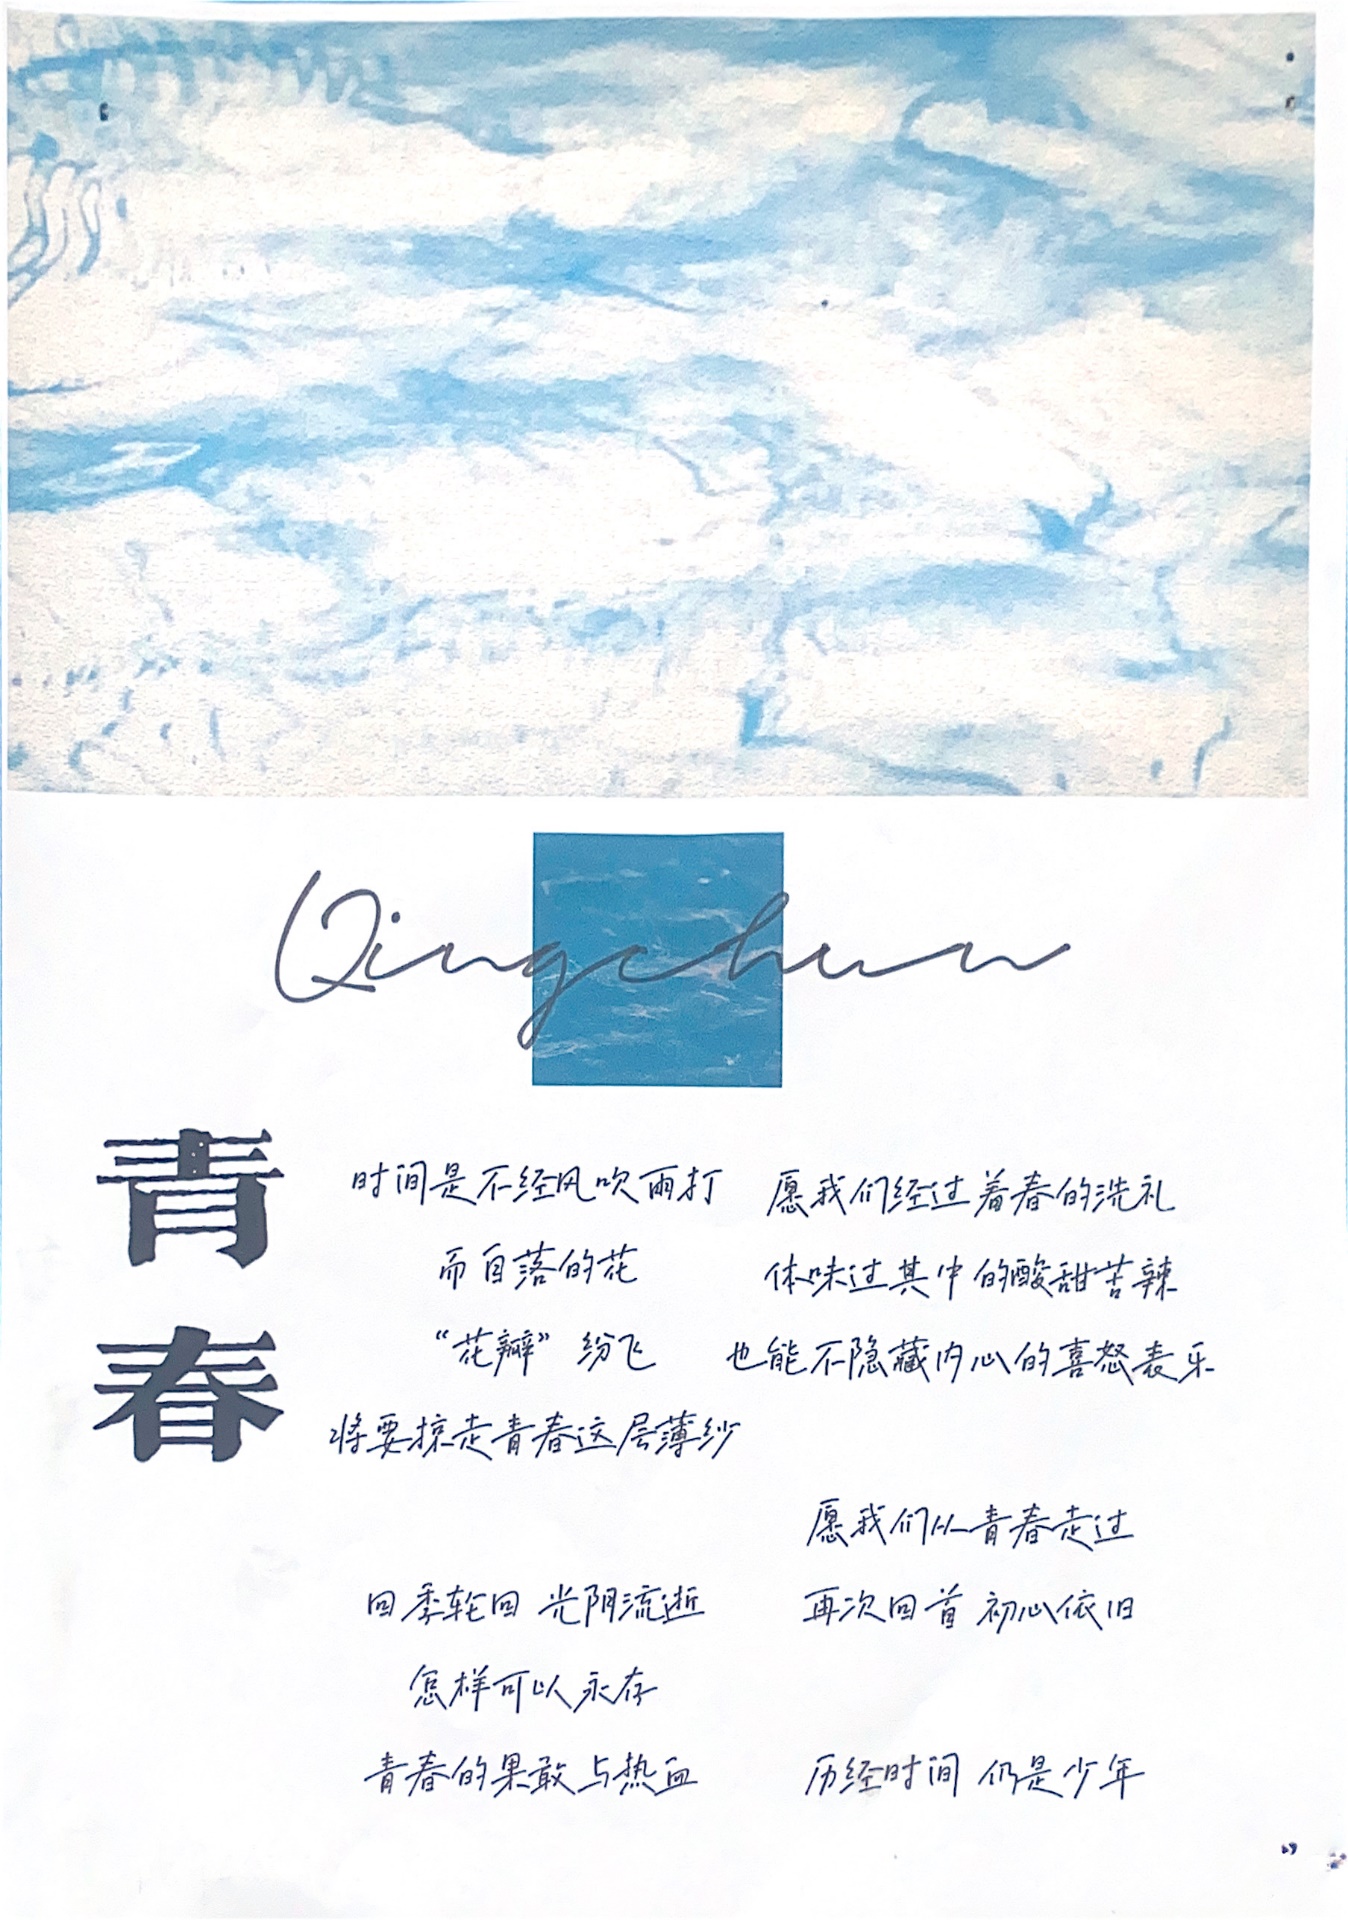 Qingchun
青春
时间是不经风吹雨打
而自落的花
“花瓣”纷飞
将要掠走青春这层薄纱
四季轮回 光阴流逝
怎样可以永存
青春的果敢与热血
愿我们经过着春的洗礼
体味过其中的酸甜苦辣
也能不隐藏内心的喜怒衰乐
愿我们从青春走过
再次回首 初心依旧
历经时间 仍是少年